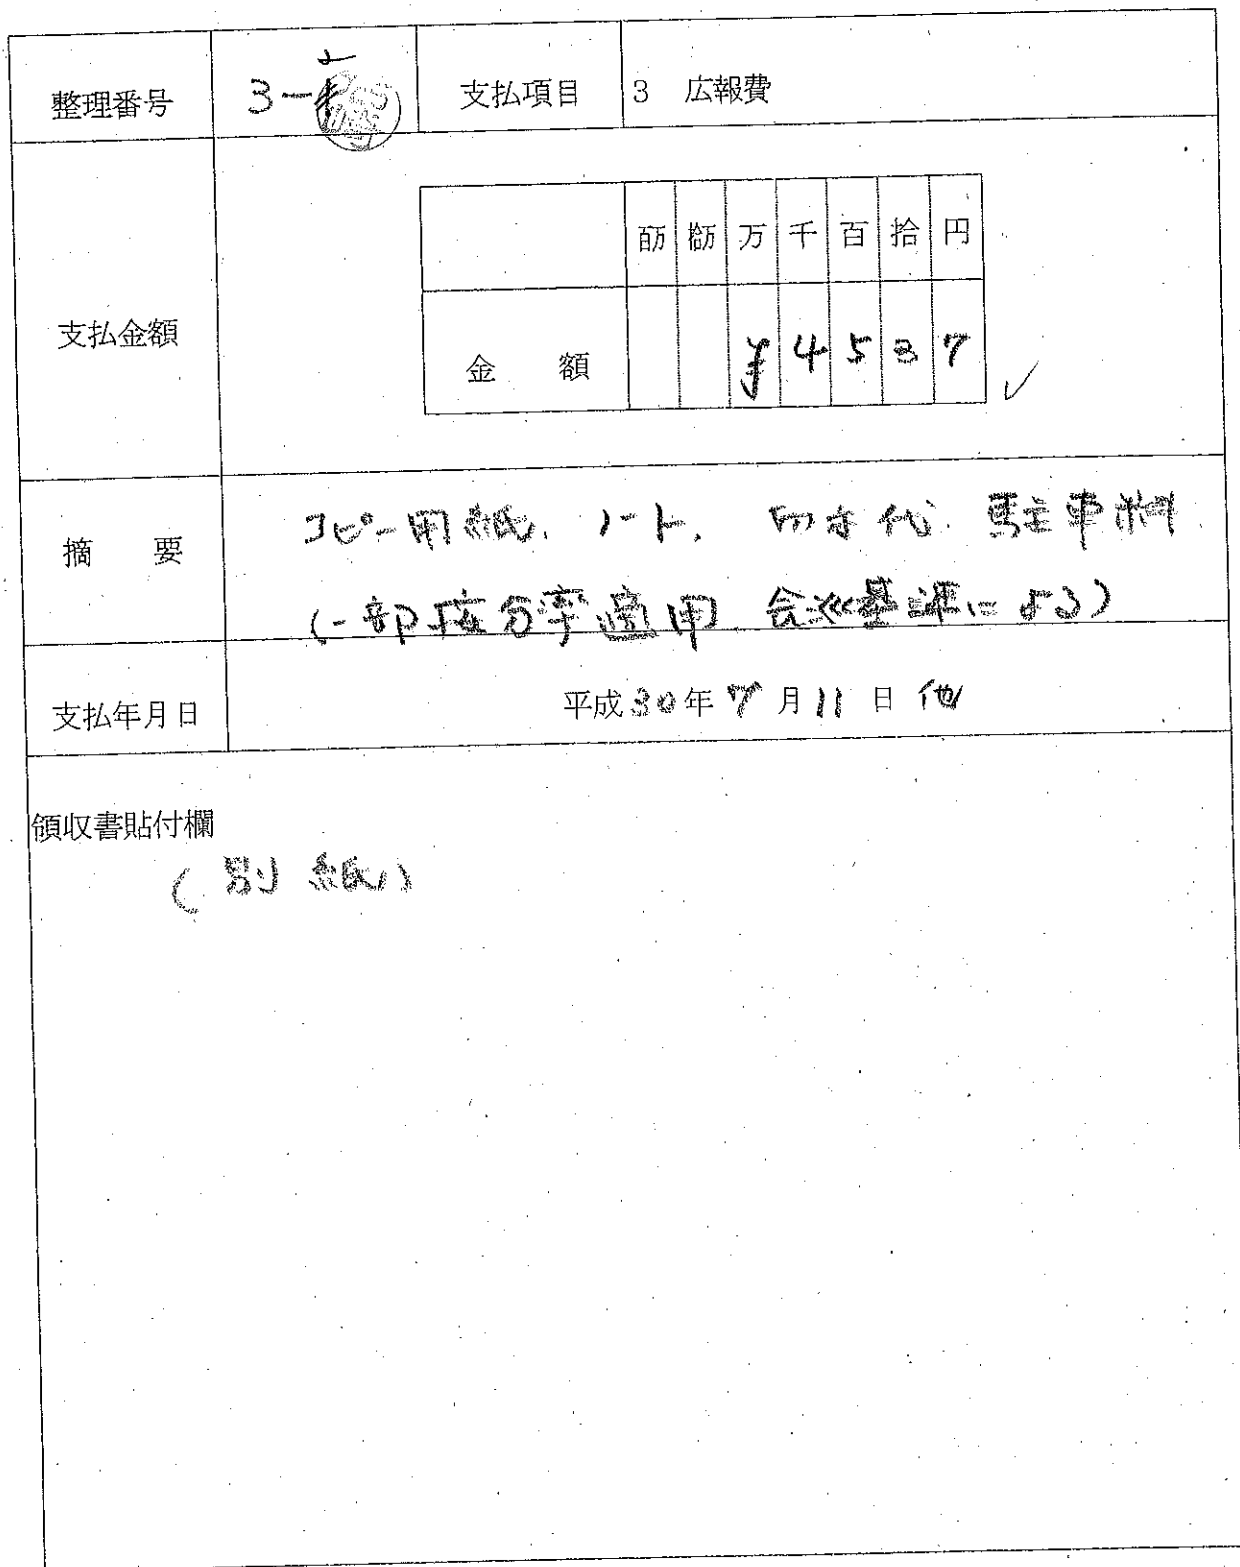 整理番号 3- 支払項目 3 広報費
百万 拾万 万 千 百 拾 円
支払金額 金 額 ¥ 4 5 3 7
摘 要 コピー用紙、ノート、切手代 駐車料
(一部按分率適用 会派基準による)
支払年月日 平成30年7月11日 他
領収書貼付欄
(別紙)